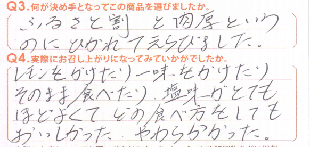 Q3.何が決め手となってこの商品を選びましたか。
ふるさと割 と肉厚という
のにひかれてえらびました。
Q4.実際にお召し上がりになってみていかがでしたか。
レモンをかけたり一味をかけたり
そのまま食べたり、塩味がとても
ほどよくて どの食べ方をしても
おいしかった やわらかかった。